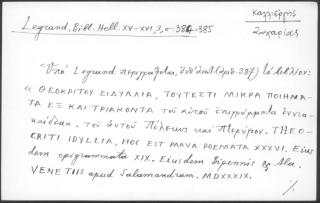 Καλλιέργης
Ζαχαρίας
Legrand, Bibl. Hell. XV-XVI, 3, σ. 384-385
Ὑπὸ Legrand περιγράφεται, τὸ βιβλίον:
« ΘΕΟΚΡΙΤΟΥ ΕΙΔΥΛΛΙΑ, ΤΟΥΤΕΣΤΙ ΜΙΚΡΑ ΠΟΙΗΜΑ-
ΤΑ ΕΞ ΚΑΙ ΤΡΙΑΚΟΝΤΑ τοῦ αὐτοῦ ἐπιγράμματα ἐννεα-
καίδεκα. τοῦ αὐτοῦ Πέλεκυς καὶ Πτερύγιον. THEO-
CRITI IDYLLIA, HOC EST PARVA POEMATA XXXVI. Eius
dem epigrammata XIX. Eiusdem Bipennis & Ala.
VENETIIS apud Salamandram. MDXXXIX.